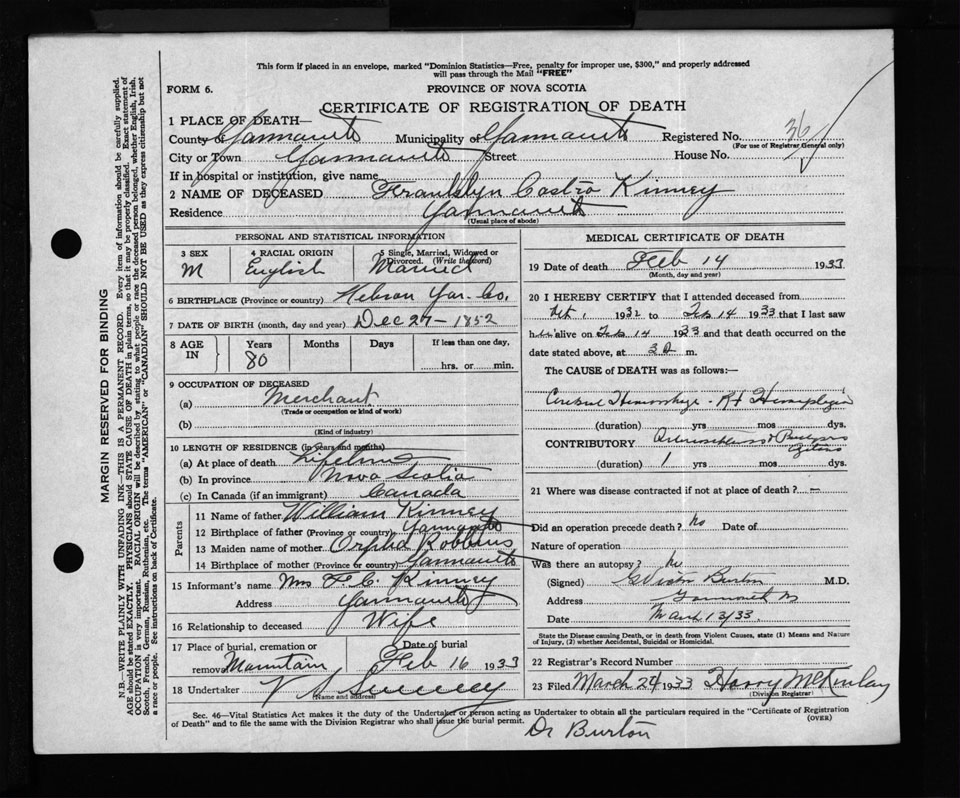 This form if placed in an envelope, marked "Dominion Statistics—Free, penalty for improper use, $300," and properly addressed
will pass through the Mail "FREE"
FORM 6.
PROVINCE OF NOVA SCOTIA
CERTIFICATE OF REGISTRATION OF DEATH
1 PLACE OF DEATH—
County of Yarmouth Municipality of Yarmouth Registered No. 36
(For use of Registrar General only)
City or Town Yarmouth Street House No.
If in hospital or institution, give name
2 NAME OF DECEASED Franklyn Castro Kinney
Residence Yarmouth
(Usual place of abode)
PERSONAL AND STATISTICAL INFORMATION
3 SEX 4 RACIAL ORIGIN 5 Single, Married, Widowed or
Divorced. (Write the word)
M English Married
6 BIRTHPLACE (Province or country) Hebron Yar. Co.
7 DATE OF BIRTH (month, day and year) Dec 27—1852
8 AGE IN Years Months Days If less than one day,
80 hrs. or min.
9 OCCUPATION OF DECEASED
(a) Merchant
(Trade or occupation or kind of work)
(b)
(Kind of industry)
10 LENGTH OF RESIDENCE (in years and months)
(a) At place of death Lifetime
(b) In province Nova Scotia
(c) In Canada (if an immigrant) Canada
Parents
11 Name of father William Kinney
12 Birthplace of father (Province or country) Yarmouth
13 Maiden name of mother Orpha Robbins
14 Birthplace of mother (Province or country) Yarmouth
15 Informant's name Mrs F. C. Kinney
Address Yarmouth
16 Relationship to deceased Wife
17 Place of burial, cremation or Date of burial
removal Mountain Feb 16 1933
18 Undertaker V S Sweeney
MEDICAL CERTIFICATE OF DEATH
19 Date of death Feb 14 1933
(Month, day and year)
20 I HEREBY CERTIFY that I attended deceased from
1932 to Feb 14 1933 that I last saw
him alive on Feb. 14 1933 and that death occurred on the
date stated above, at m.
The CAUSE of DEATH was as follows:—
Cerebral Hemorrhage - Rt Hemiplegia
(duration) yrs mos dys.
CONTRIBUTORY
(duration) 1 yrs mos dys.
21 Where was disease contracted if not at place of death? —
Did an operation precede death? No Date of
Nature of operation
Was there an autopsy? No
(Signed) Burton M.D.
Address Yarmouth
Date March 13/33.
State the Disease causing Death, or in death from Violent Causes, state (1) Means and Nature
of Injury, (2) whether Accidental, Suicidal or Homicidal.
22 Registrar's Record Number
23 Filed March 24 1933 Harry McKinlay
(Division Registrar)
Sec. 46—Vital Statistics Act makes it the duty of the Undertaker or person acting as Undertaker to obtain all the particulars required in the "Certificate of Registration
of Death" and to file the same with the Division Registrar who shall issue the burial permit. (OVER)
Dr Burton
MARGIN RESERVED FOR BINDING
N.B.—WRITE PLAINLY WITH UNFADING INK—THIS IS A PERMANENT RECORD. Every item of information should be carefully supplied.
AGE should be stated EXACTLY. PHYSICIANS should STATE CAUSE OF DEATH in plain terms, so that it may be properly classified. Exact statement of
OCCUPATION is very important. RACIAL ORIGIN will be described by stating to what people or race the deceased person belonged, whether English, Irish,
Scotch, French, German, Russian, Ruthenian, etc. The terms "AMERICAN" or "CANADIAN" SHOULD NOT BE USED as they express citizenship but not
a race or people. See instructions on back of Certificate.